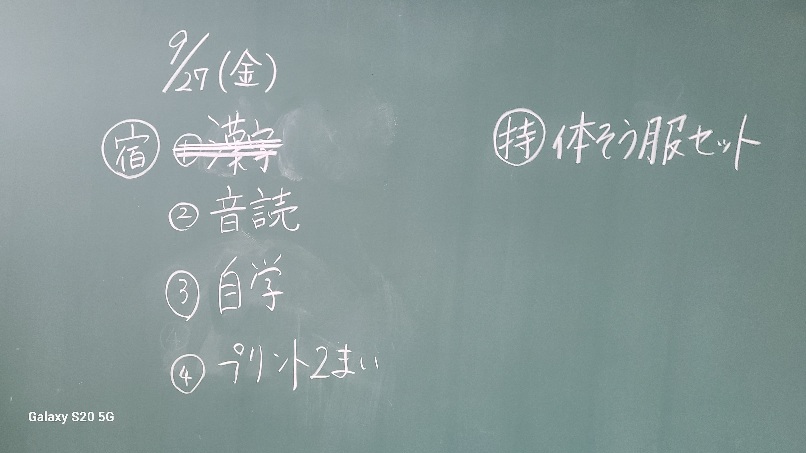 9/27(金)
宿 ①漢字
②音読
③自学
④プリント2まい
持 体そう服セット
Galaxy S20 5G